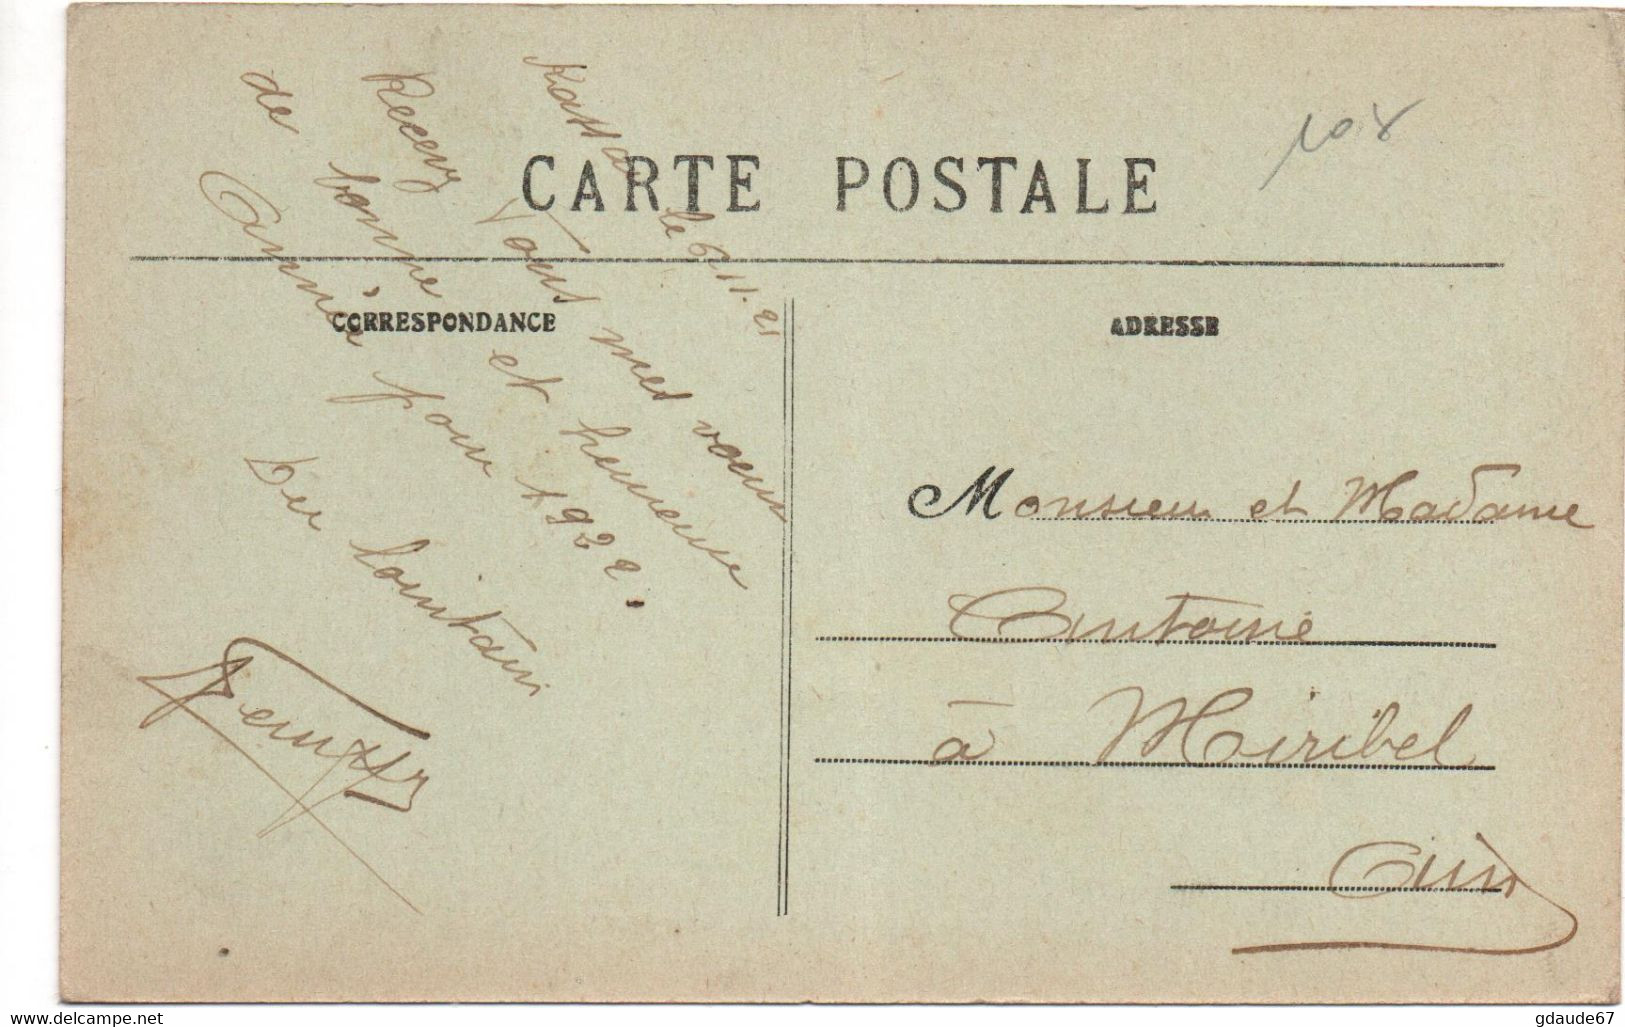 108
CARTE POSTALE
CORRESPONDANCE
ADRESSE
le 6.11.21
Recevez Tous mes voeux
de bonne et heureuse
Année pour 1922.
Du lointain
Monsieur et Madame
Antoine
à Miribel
Ain
www.delcampe.net
gdaude67